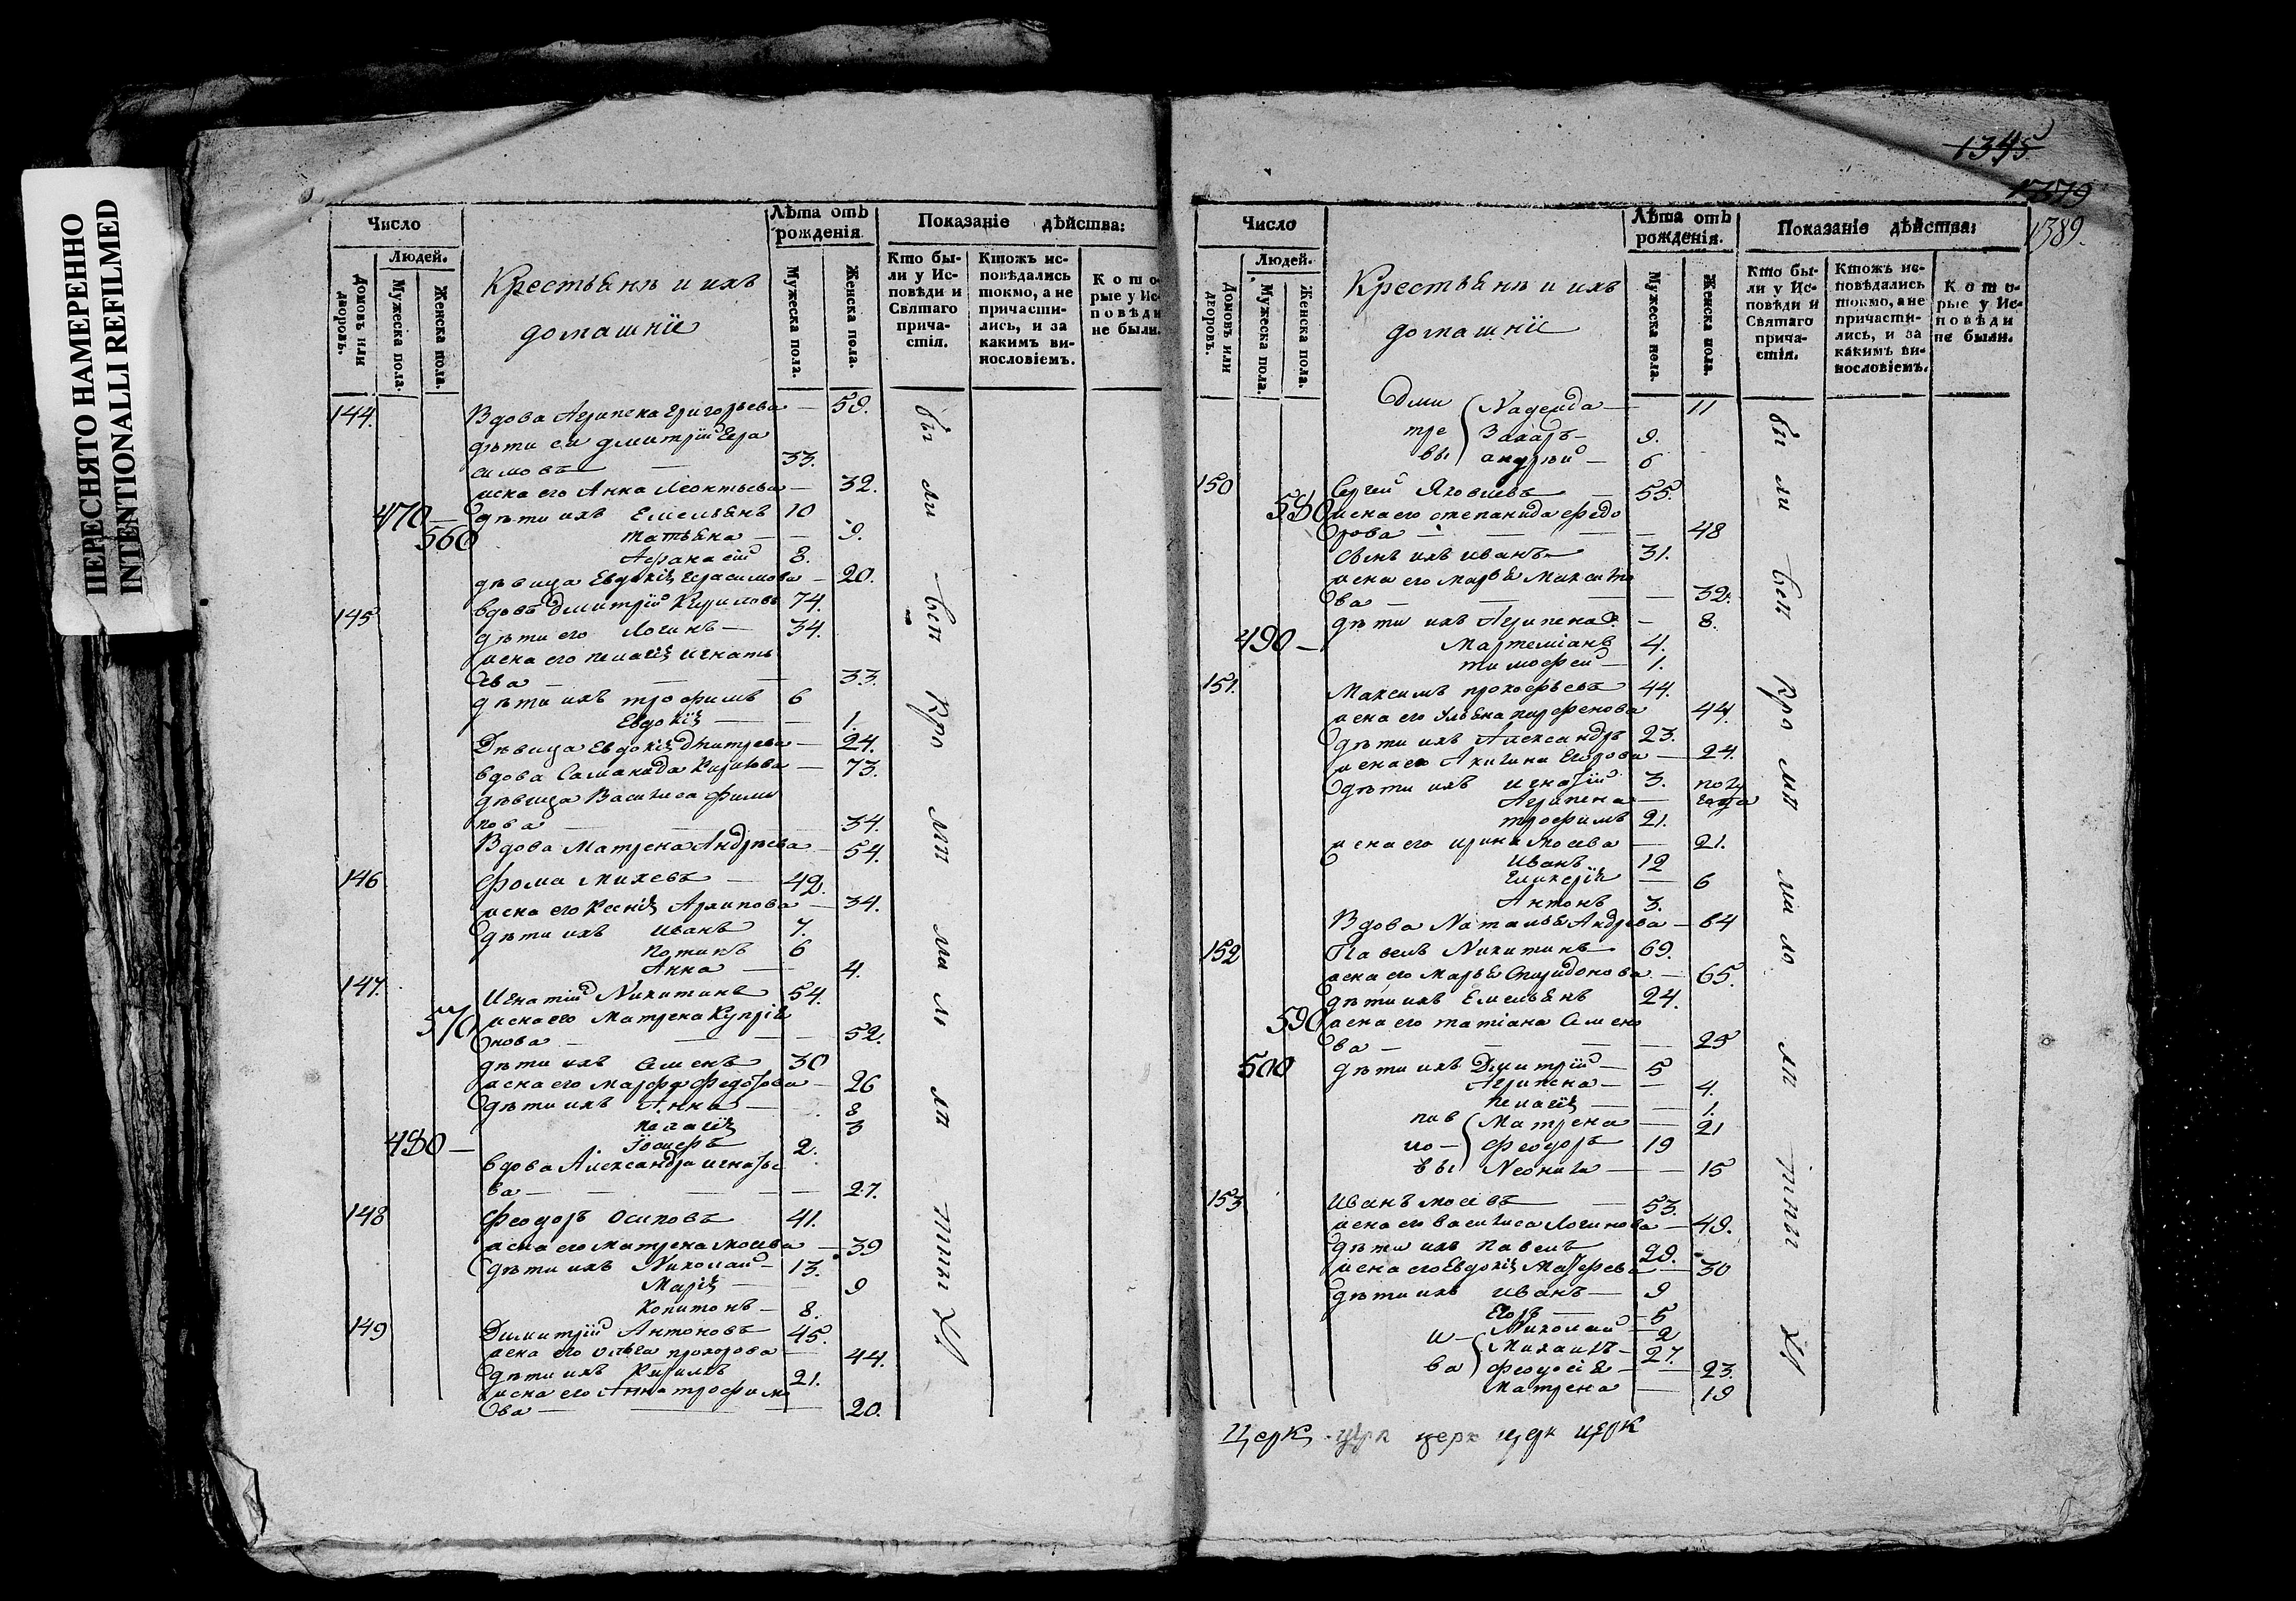 ПЕРЕСНЯТО НАМЕРЕННО
INTENTIONALLI REFILMED
Число
Людей.
Домовъ или дворовъ.
Мужеска пола.
Женска пола.
Крестьянъ и ихъ
домашніе
Лѣта отъ рожденія
Мужеска пола.
Женска пола.
Показаніе дѣйства:
Кто были у Исповѣди и Святаго причастія.
Ктожъ исповѣдались токмо, а не причастились, и за какимъ винословіемъ.
Которые у Исповѣди не были.
144. Вдова Агрипена Григорьева — 59.
дѣти ея Дмитрій Гера
симовъ — 33.
жена его Анна Леонтьева — 32.
470 — дѣти ихъ Емельянъ 10
560 Татьяна — 9.
Афанасій 8.
дѣвица Евдокія Герасимова — 20.
145 вдовъ Дмитрій Кириловъ 74.
дѣти его Логинъ — 34.
жена его Пелагія Игнать
ева — 33.
дѣти ихъ Трофимъ 6
Евдокія — 1.
Дѣвица Евдокія Дмитрева — 24.
вдова Саманида Кирилова — 73.
дѣвица Василиса Фили
пова 34.
Вдова Матрена Андрѣева — 54.
146 Фома Михевъ — 42.
жена его Ксенія Архипова — 34.
дѣти ихъ Иванъ 7.
Потапъ 6
Анна — 4.
147. Игнатій Никитинъ 54.
570 жена его Матрена Купрія
нова — 52.
дѣти ихъ Семенъ 30
жена его Марфа Федотова — 26
дѣти ихъ Анна — 8
Палагія 3
480 — Іосифъ 2.
вдова Александра Игнатье
ва — 27.
148 Феодоръ Осиповъ 41.
жена его Матрена Мосева — 39
дѣти ихъ Николай — 13.
Марія — 9
Копитонъ — 8.
149 Димитрій Антоновъ 45.
жена его Ольга Прохорова — 44.
дѣти ихъ Кирилъ 21.
жена его Анна Трофимо
ва — 20.
бы ли вси
1345
1379
1389.
Число
Людей.
Домовъ или дворовъ.
Мужеска пола.
Женска пола.
Крестьянъ и ихъ
домашніе
Лѣта отъ рожденія.
Мужеска пола.
Женска пола.
Показаніе дѣйства:
Кто были у Исповѣди и Святаго причастія.
Ктожъ исповѣдались токмо, а не причастились, и за какимъ винословіемъ.
Которые у Исповѣди не были.
Дми Надежда — 11
тре Захаръ — 9.
вы Андрѣй — 6
150 Сергей Яковлевъ — 55.
580 жена его Степанида Федо
рова — 48
сынъ ихъ Иванъ — 31.
жена его Марья Максимо
ва — 32.
дѣти ихъ Агрипена — 8.
490 — Мартеміанъ 4.
Тимофей — 1.
151. Максимъ Прокофьевъ 44.
жена его Ульяна Парфенова 44.
дѣти ихъ Александръ 23.
жена его Акилина Егорова — 24.
дѣти ихъ Игнатій 3.
Агрипена — полу
года
Трофимъ 21.
жена его Ирина Мосева — 21.
Иванъ 12
Гликерія — 6
Антонъ 3.
Вдова Наталья Андрева — 64
152 Павелъ Никитинъ 69.
жена его Марья Спиридонова — 65.
дѣти ихъ Емельянъ 24.
590 жена его Татіана Семено
ва — 25
500 дѣти ихъ Дмитрій — 5
Агрипена — 4.
Пелагія — 1.
пав Матрена — 21
ло — Феодоръ 19
вы Неонила — 15
153 Иванъ Мосевъ — 53.
жена его Василиса Логинова — 49.
дѣти ихъ Павелъ 29.
жена его Евдокія Матфева — 30
дѣти ихъ Иванъ — 9
Егоръ — 5
Николай — 2
И — Михаилъ — 27.
ва Феодосія — 23.
Матрена — 19
бы ли вси
Церк церк церк церк церк